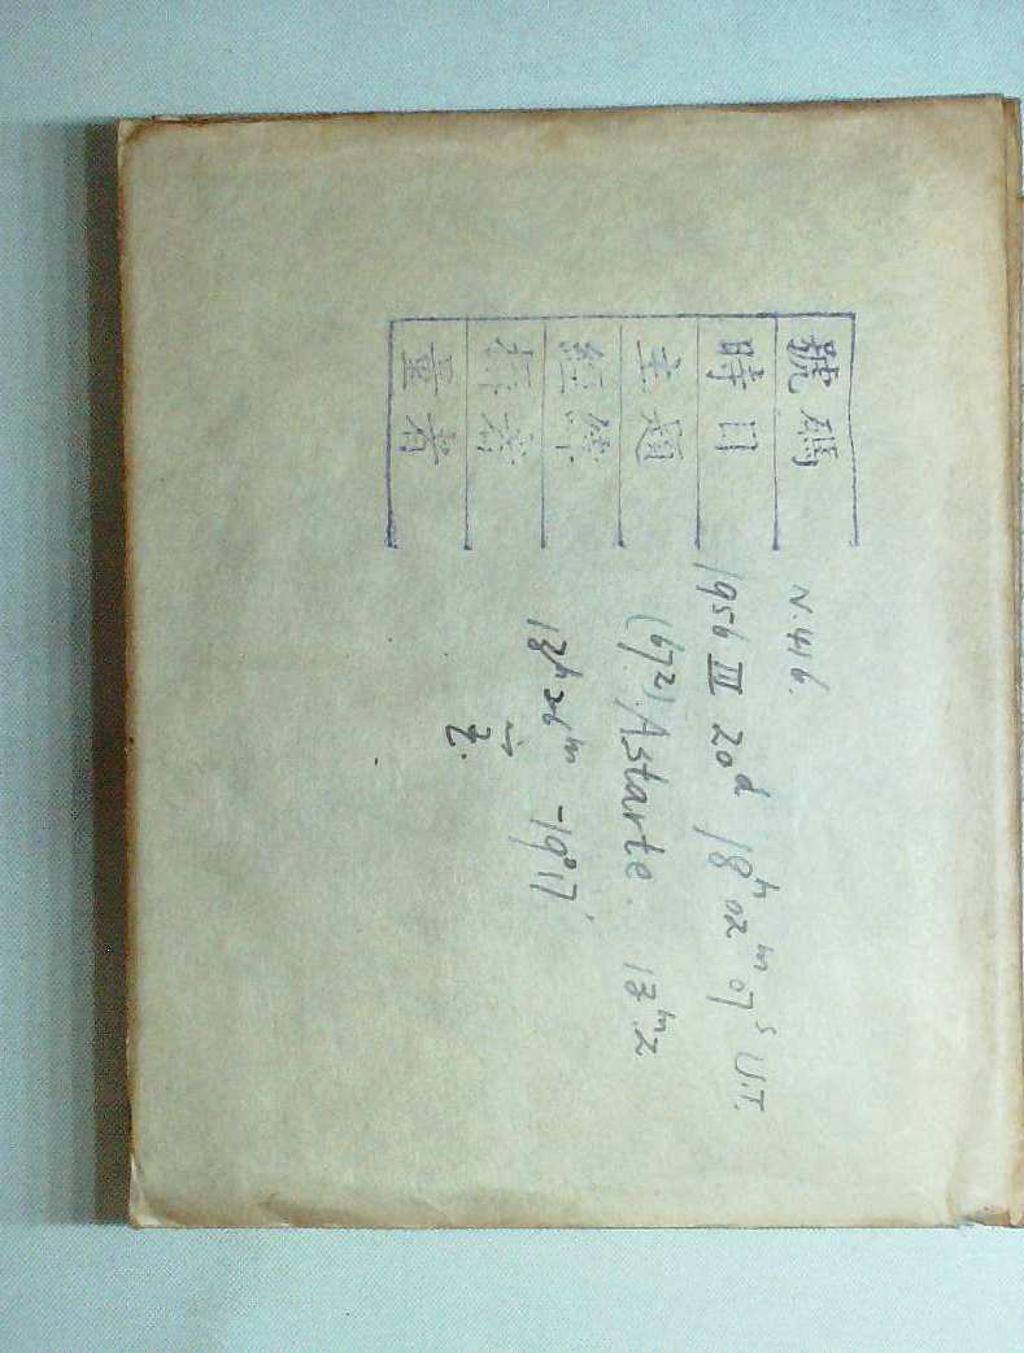 號碼 N.416.
時日 1956 III 20d 18h 02m 07s U.T.
主題 (672) Astarte. 13m.2
經緯 13h 26m -19°17'
拆者
量者 Z.